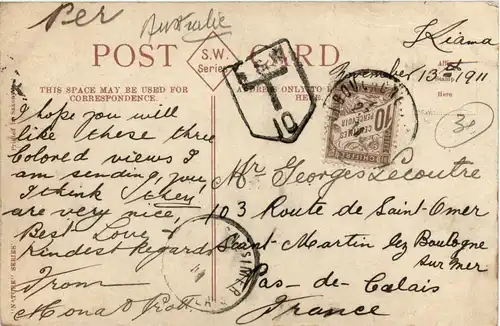 Per
Australie
POST CARD
S.W.
Series
Kiama
November 13th 1911
THIS SPACE MAY BE USED FOR
CORRESPONDENCE.
ADDRESS ONLY TO
Stamp
Here
T
10
10
CENTIMES
A PERCEVOIR
30
I hope you will
like these three
Colored views I
am sending, you,
I think they
are very nice,
Best Love &
kindest Regards
From
Mr Georges Lecoutre
103 Route de Saint-Omer
Saint Martin lez Boulogne
sur mer
Pas-de-Calais
France